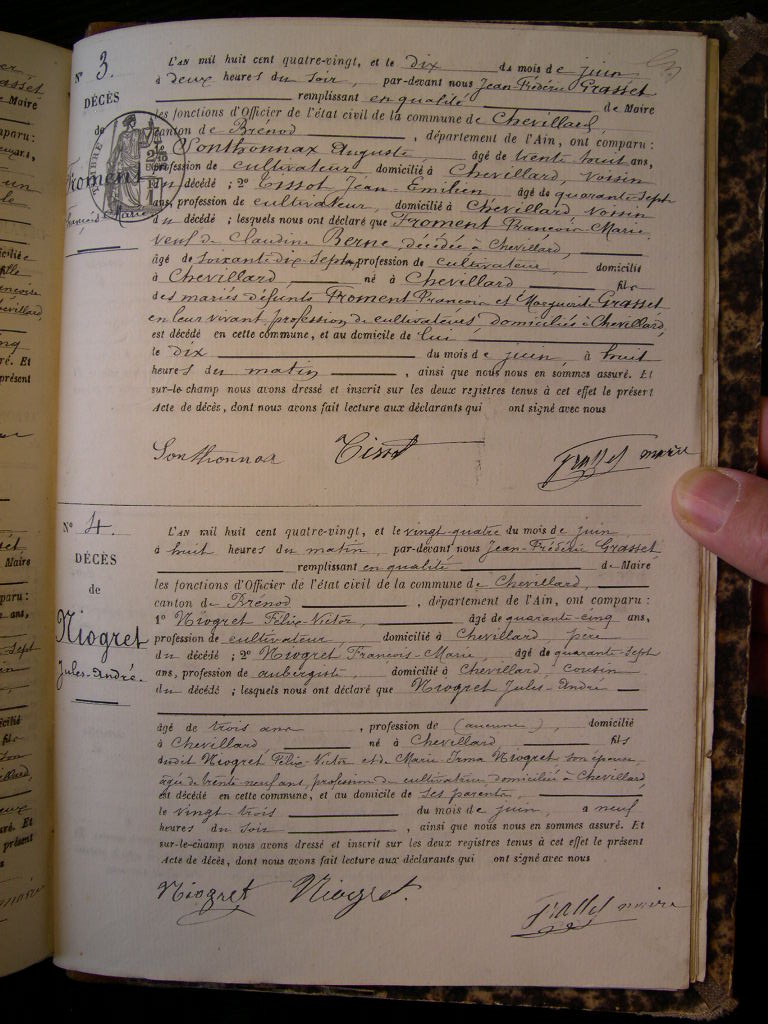 N° 3.
DÉCÈS
de
Froment
François-Marie
L'AN mil huit cent quatre-vingt, et le dix du mois de juin
à deux heures du soir, par-devant nous Jean-Frédéric Grasset
remplissant en qualité de Maire
les fonctions d'Officier de l'état civil de la commune de Chevillard,
canton de Brénod, département de l'Ain, ont comparu :
Sonthonnax Auguste âgé de trente-huit ans,
profession de cultivateur, domicilié à Chevillard, voisin
du décédé ; 2° Tissot Jean-Emilien âgé de quarante-sept
ans, profession de cultivateur, domicilié à Chevillard, voisin
du décédé ; lesquels nous ont déclaré que Froment François-Marie
veuf de Claudine Berne, décédée à Chevillard,
âgé de soixante-dix-sept, profession de cultivateur, domicilié
à Chevillard, né à Chevillard fils
des mariés défunts Froment François et Marguerite Grasset
en leur vivant, profession de cultivateurs domiciliés à Chevillard,
est décédé en cette commune, et au domicile de lui
le dix du mois de juin, à huit
heures du matin, ainsi que nous nous en sommes assuré. Et
sur-le-champ nous avons dressé et inscrit sur les deux registres tenus à cet effet le présent
Acte de décès, dont nous avons fait lecture aux déclarants qui ont signé avec nous
Sonthonnax Tissot Grasset maire
N° 4.
DÉCÈS
de
Niogret
Jules-André.
L'AN mil huit cent quatre-vingt, et le vingt-quatre du mois de juin
à huit heures du matin, par-devant nous Jean-Frédéric Grasset
remplissant en qualité de Maire
les fonctions d'Officier de l'état civil de la commune de Chevillard,
canton de Brénod, département de l'Ain, ont comparu :
1° Niogret Félix-Victor, âgé de quarante-cinq ans,
profession de cultivateur, domicilié à Chevillard, père
du décédé ; 2° Niogret François-Marie, âgé de quarante-sept
ans, profession de aubergiste, domicilié à Chevillard, cousin
du décédé ; lesquels nous ont déclaré que Niogret Jules-André
âgé de trois ans, profession de (aucune), domicilié
à Chevillard, né à Chevillard, fils
dudit Niogret Félix-Victor et de Marie-Irma Niogret son épouse,
âgée de trente-neuf ans, profession de cultivatrice, domiciliée à Chevillard,
est décédé en cette commune, et au domicile de ses parents,
le vingt-trois du mois de juin, à neuf
heures du soir, ainsi que nous nous en sommes assuré. Et
sur-le-champ nous avons dressé et inscrit sur les deux registres tenus à cet effet le présent
Acte de décès, dont nous avons fait lecture aux déclarants qui ont signé avec nous
Niogret Niogret. Grasset maire